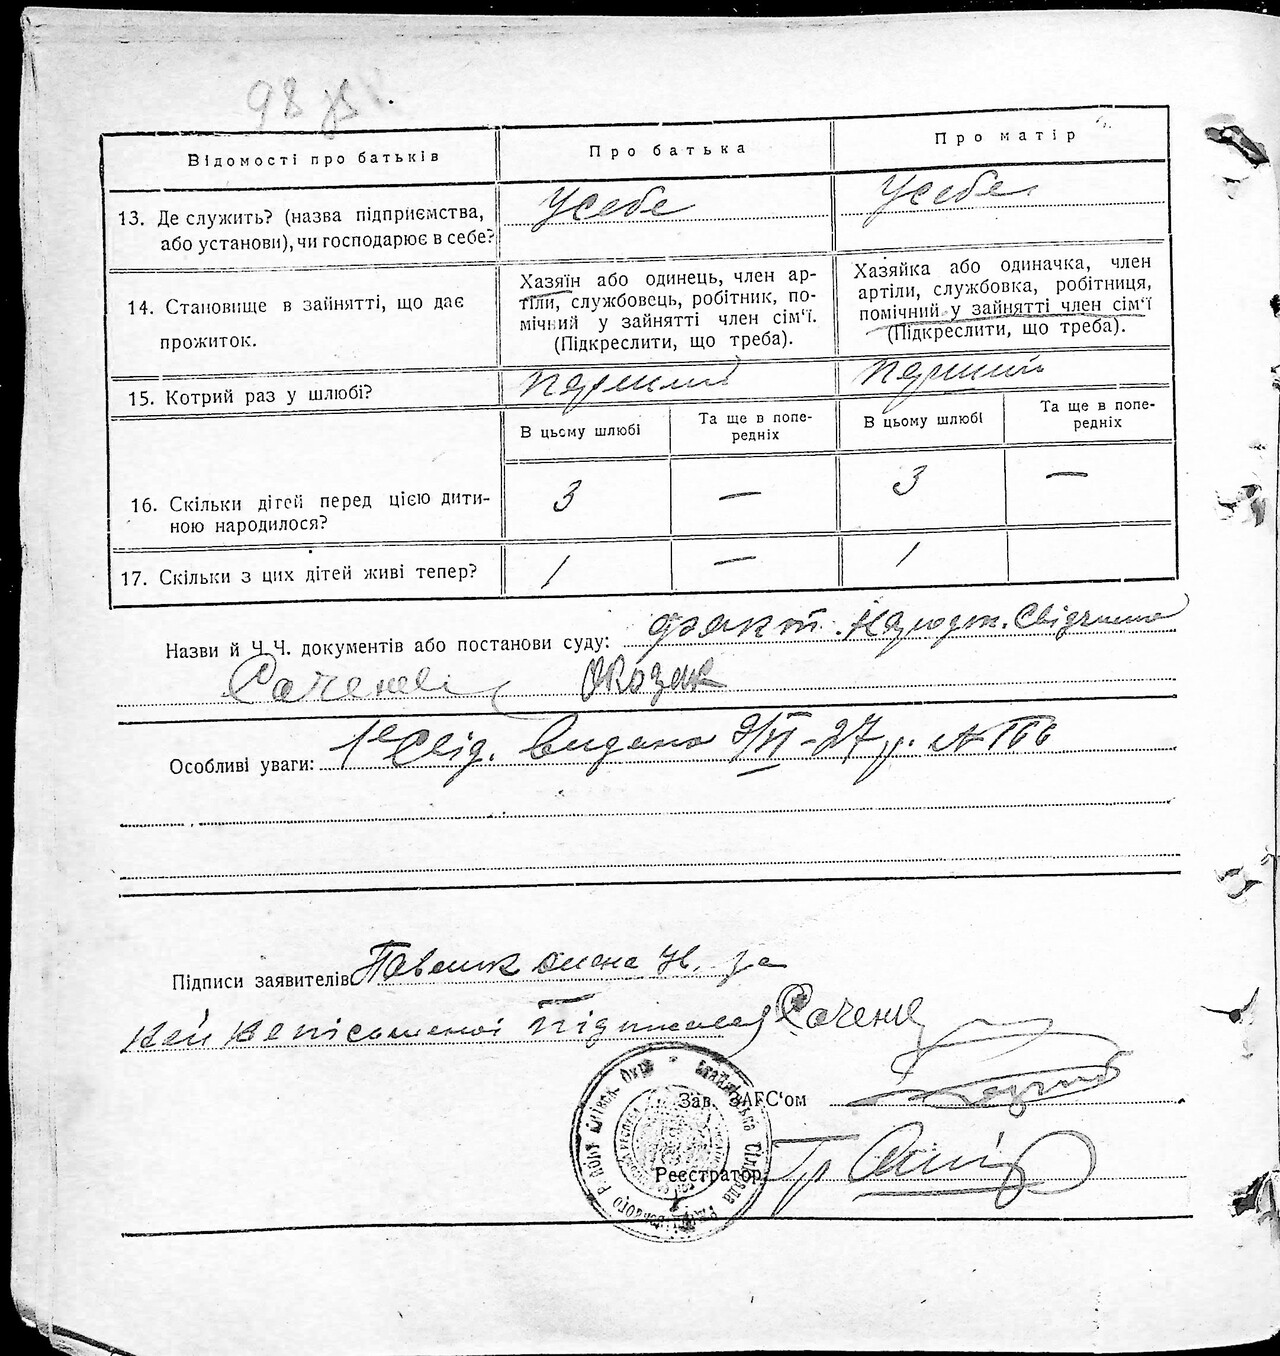 98 зв.
Відомості про батьків
Про батька
Про матір
13. Де служить? (назва підприємства,
або установи), чи господарює в себе?
Усебе
Усебе
14. Становище в зайнятті, що дає
прожиток.
Хазяїн або одинець, член ар-
тіли, службовець, робітник, по-
мічний у зайнятті член сім'ї.
(Підкреслити, що треба).
Хазяйка або одиначка, член
артіли, службовка, робітниця,
помічний у зайнятті член сім'ї
(Підкреслити, що треба).
15. Котрий раз у шлюбі?
перший
перший
В цьому шлюбі
Та ще в попе-
редніх
В цьому шлюбі
Та ще в попе-
редніх
16. Скільки дітей перед цією дити-
ною народилося?
3 — 3 —
17. Скільки з цих дітей живі тепер?
1 — 1
Назви й Ч.Ч. документів або постанови суду: факт. Народж. Свідчили
Козак
Особливі уваги: 1е Свід. видано 9/VI-27 р. №
Підписи заявителів Павлик Олена Н. за
неї неписьменої Підписався
Зав. ЗАГС'ом
Реєстратор